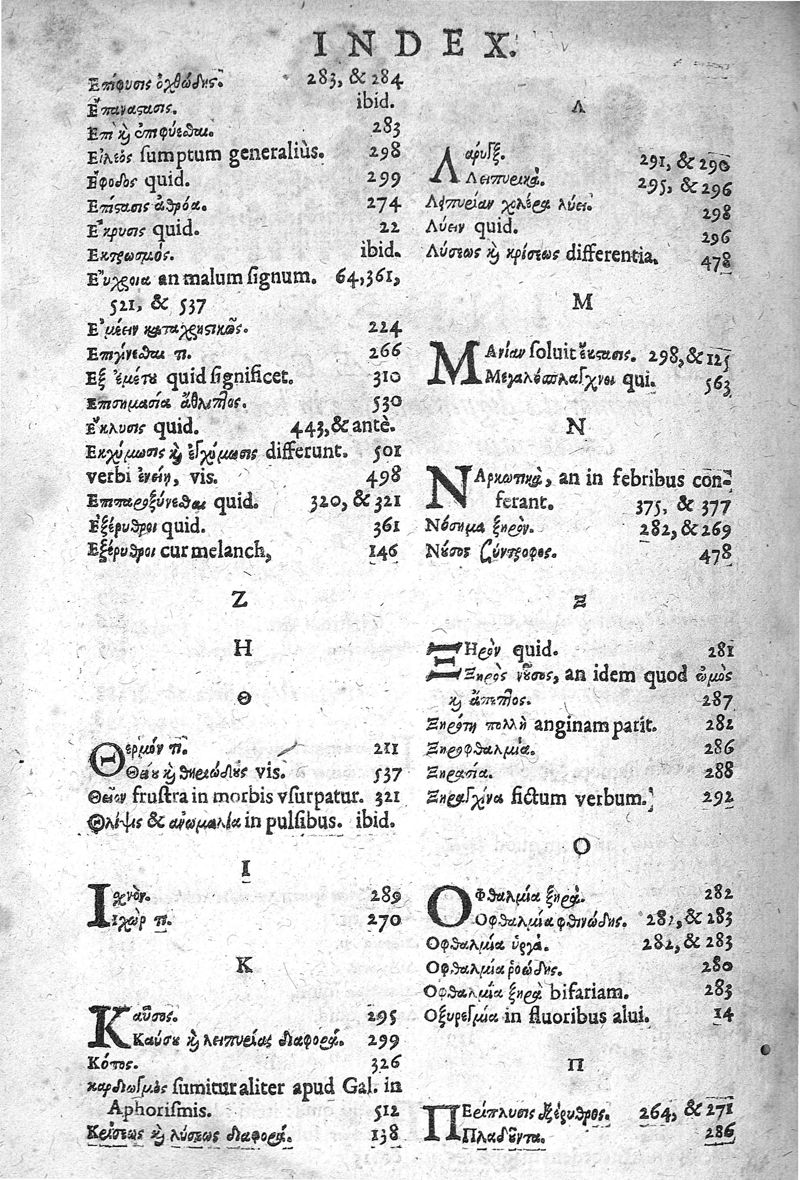 INDEX.
Επίφυσις ὀχθώδης. 283, & 284
Επανάστασις. ibid.
Επὶ καὶ ἐπιφύεσθαι. 283
Ειλεὸς sumptum generaliùs. 298
Εφοδος quid. 299
Επίστασις ἀθρόα. 274
Εκρυσις quid. 22
Εκτρωσμός. ibid.
Ευχροια an malum signum. 64, 361,
521, & 537
Εμέειν καταχρηστικῶς. 224
Επιγίνεσθαι τί. 266
Εξ ἐμέτου quid significet. 310
Επισημασία ἄθλιπτος. 530
Εκλυσις quid. 443, & antè.
Εκχύμωσις καὶ ἐγχύμωσις differunt. 501
verbi ἐνεῖν, vis. 498
Επιπαροξύνεσθαι quid. 320, & 321
Εξέρυθροι quid. 361
Εξέρυθροι cur melanch, 146
Z
H
Θ
Θερμόν τί. 211
Θείου καὶ θηριώδους vis. 537
Θεῖον frustra in morbis vsurpatur. 321
Θλίψις & ανωμαλία in pulsibus. ibid.
I
Ισχνόν. 289
Ιχὼρ τί. 270
K
Καῦσος. 295
Καύσου καὶ λειπυρίας διαφορά. 299
Κόπος. 326
καρδιωγμὸς sumitur aliter apud Gal. in
Aphorismis. 512
Κρίσεως καὶ λύσεως διαφορά. 138
Λ
Λάρυγξ. 291, & 290
Λειπυρικά. 295, & 296
Λειπυρίαν χολέρα λύει. 298
Λύειν quid. 296
Λύσεως καὶ κρίσεως differentia. 478
M
Μανίαν soluit ἔκστασις. 298, & 125
Μεγαλόσπλαγχνοι qui. 563
N
Ναρκωτικὰ, an in febribus con-
ferant. 375, & 377
Νόσημα ξηρόν. 282, & 269
Νοῦσος ξύντροφος. 478
Ξ
Ξηρὸν quid. 281
Ξηρὸς νοῦσος, an idem quod ὠμὸς
καὶ ἄπεπτος. 287
Ξηρότη πολλὴ anginam parit. 282
Ξηροφθαλμία. 286
Ξηρασία. 288
Ξηραγχίνα fictum verbum. 292
O
Οφθαλμία ξηρά. 282
Οφθαλμία φθινώδης. 282, & 283
Οφθαλμία ὑργά. 282, & 283
Οφθαλμία ῥοώδης. 280
Οφθαλμία ξηρὰ bifariam. 283
Οξυρεγμία in fluoribus alui. 14
Π
Περίπλυσις ἐξέρυθρος. 264, & 271
Πλαδῶντα. 286